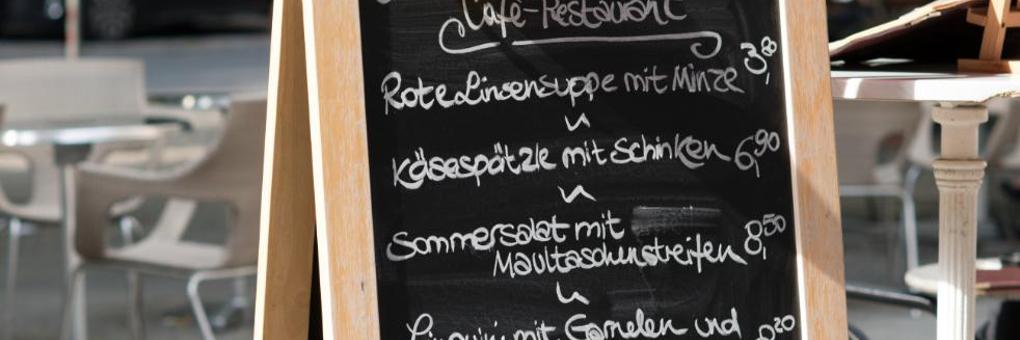 Café-Restaurant
Rote Linsensuppe mit Minze 3,80
Käsespätzle mit Schinken 6,90
Sommersalat mit
Maultaschenstreifen 8,50
Linguini mit Garnelen und